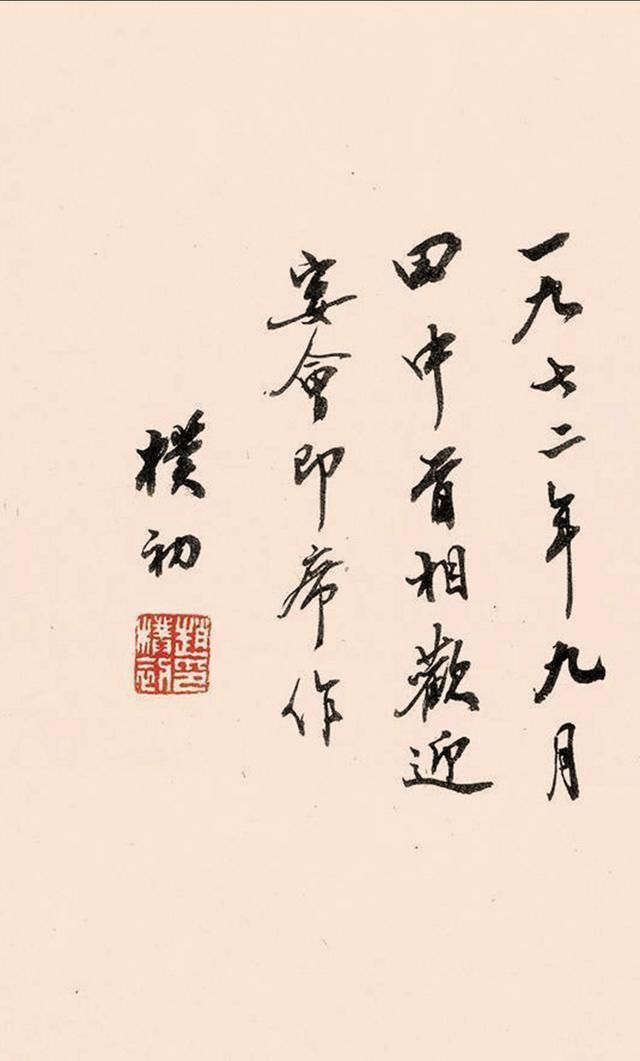 一九七二年九月
田中首相歡迎
宴會即席作
樸初
趙樸初印